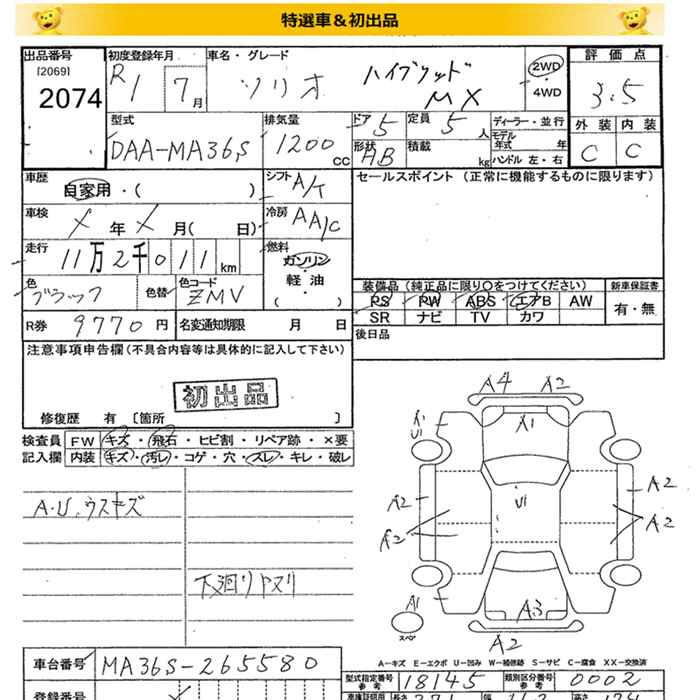 特選車&初出品
出品番号 初度登録年月 車名・グレード 評価点
[2069]
2074 R1 7月 ソリオ ハイブリッド MX 2WD・4WD 3.5
外装 内装
C C
型式 排気量 ドア 5 定員 5人 ディーラー・並行
DAA-MA36S 1200cc 形状 AB 積載 kg モデル年式 年
ハンドル 左・右
車歴 自家用・( ) シフト A/T セールスポイント (正常に機能するものに限ります)
車検 メ年メ月( 日) 冷房 AA/C
走行 11万2千011km 燃料 ガソリン・軽油・( )
色 ブラック 色替 色コード ZMV
装備品 (純正品に限り○をつけてください) 新車保証書
PS PW ABS エアB AW 有・無
SR ナビ TV カワ
R券 9770円 名変通知期限 月 日 後日品
注意事項申告欄(不具合内容等は具体的に記入して下さい)
初出品
修復歴 有 [箇所 ]
検査員 FW キズ・飛石・ヒビ割・リペア跡・×要
記入欄 内装 キズ・汚レ・コゲ・穴・スレ・キレ・破レ
A.U.ウスキズ
下廻りヤスリ
A4 A2
A1
U1
U1
A2 A2
A2 A2
A1
A3
スペア
A2
A-キズ E-エクボ U-凹み W-補修跡 S-サビ C-腐食 XX-交換済
車台番号 MA36S-265580
型式指定番号 参考 18145 類別区分番号 参考 0002
登録番号